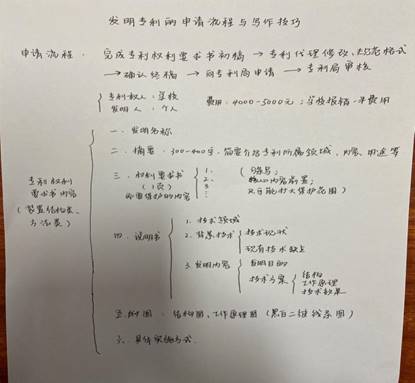 发明专利的申请流程与写作技巧
申请流程：完成专利权利要求书初稿 → 专利代理修改、规范格式
→ 确认终稿 → 向专利局申请 → 专利局审核
专利权人：学校
发明人：个人
费用：4000-5000元；学校报销一半费用
专利权利
要求书内容
(装置结构类、
方法类)
一、发明名称
二、摘要：300-400字，简要介绍专利所属领域、内容、用途等
三、权利要求书
(1页)
所要保护的内容
1、
2、
3、
核心内容前置；
尽可能扩大保护范围)
四、说明书
1. 技术领域
2. 背景技术
技术现状
现有技术缺点
3. 发明内容
发明目的
技术方案
结构
工作原理
技术效果
五、附图：结构图、工作原理图(黑白二维线条图)
六、具体实施方式